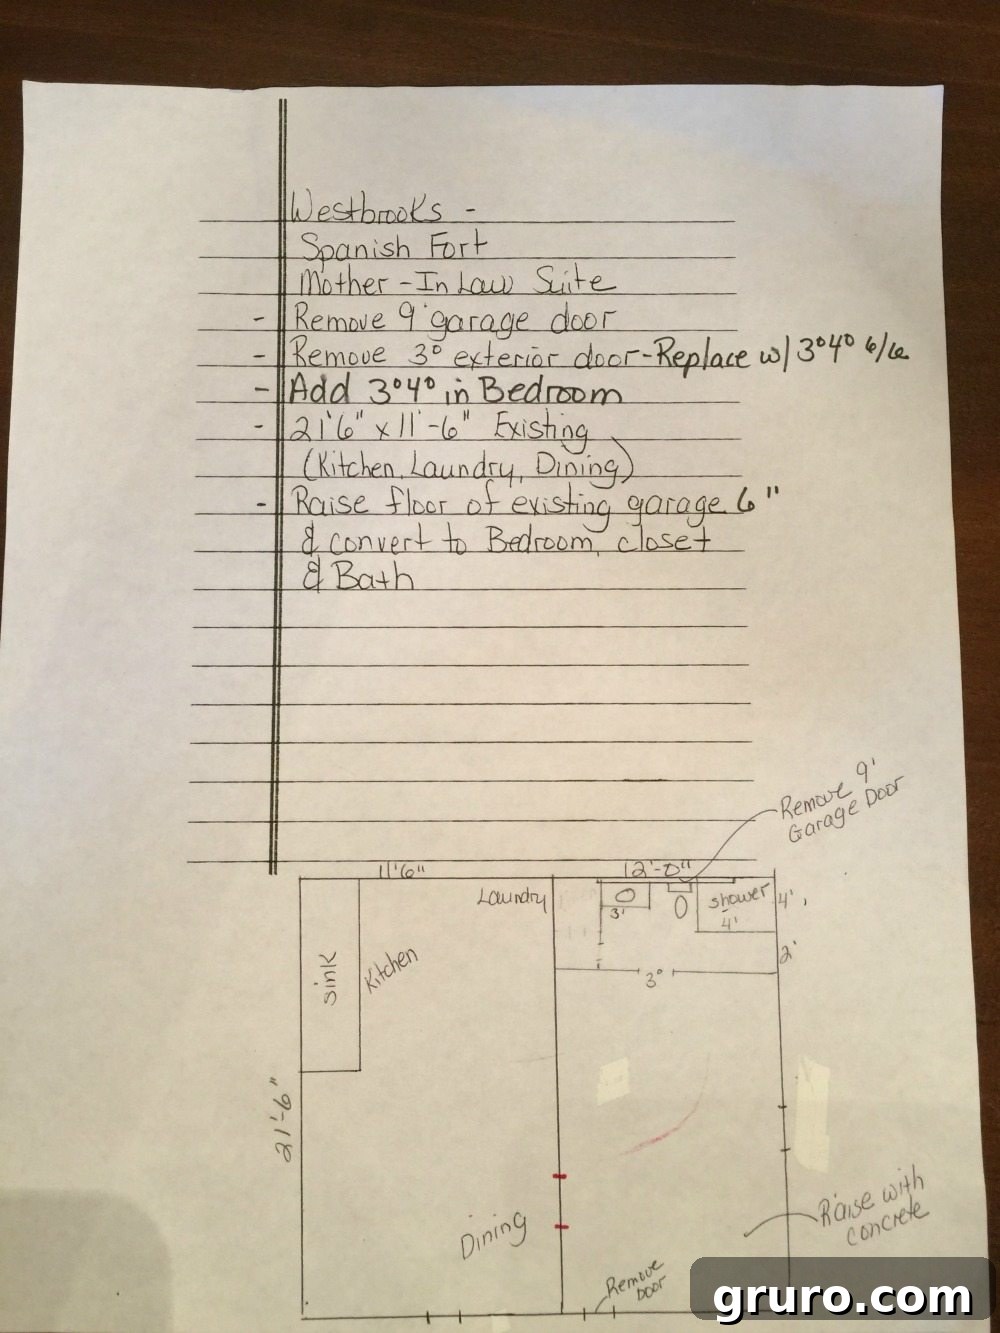 Westbrooks -
Spanish Fort
Mother - In Law Suite
- Remove 9' garage door
- Remove 3⁰ exterior door - Replace w/ 3⁰4⁰ 6/6
- Add 3⁰4⁰ in Bedroom
- 21'6" x 11'-6" Existing
(Kitchen, Laundry, Dining)
- Raise floor of existing garage 6"
& convert to Bedroom, closet
& Bath
Remove 9'
Garage Door
11'6"
12'-0"
Laundry
3'
shower
4'
4'
2'
3⁰
sink
Kitchen
21'-6"
Dining
Raise with
concrete
Remove
Door
gruro.com